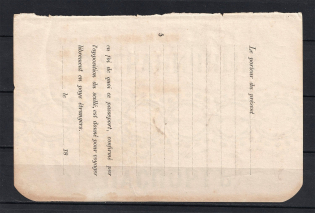 Le porteur du présent
en foi de quoi ce passeport, confirmé par
l'apposition du scellé, est donné pour voyager
librement en pays étrangers.
le 18